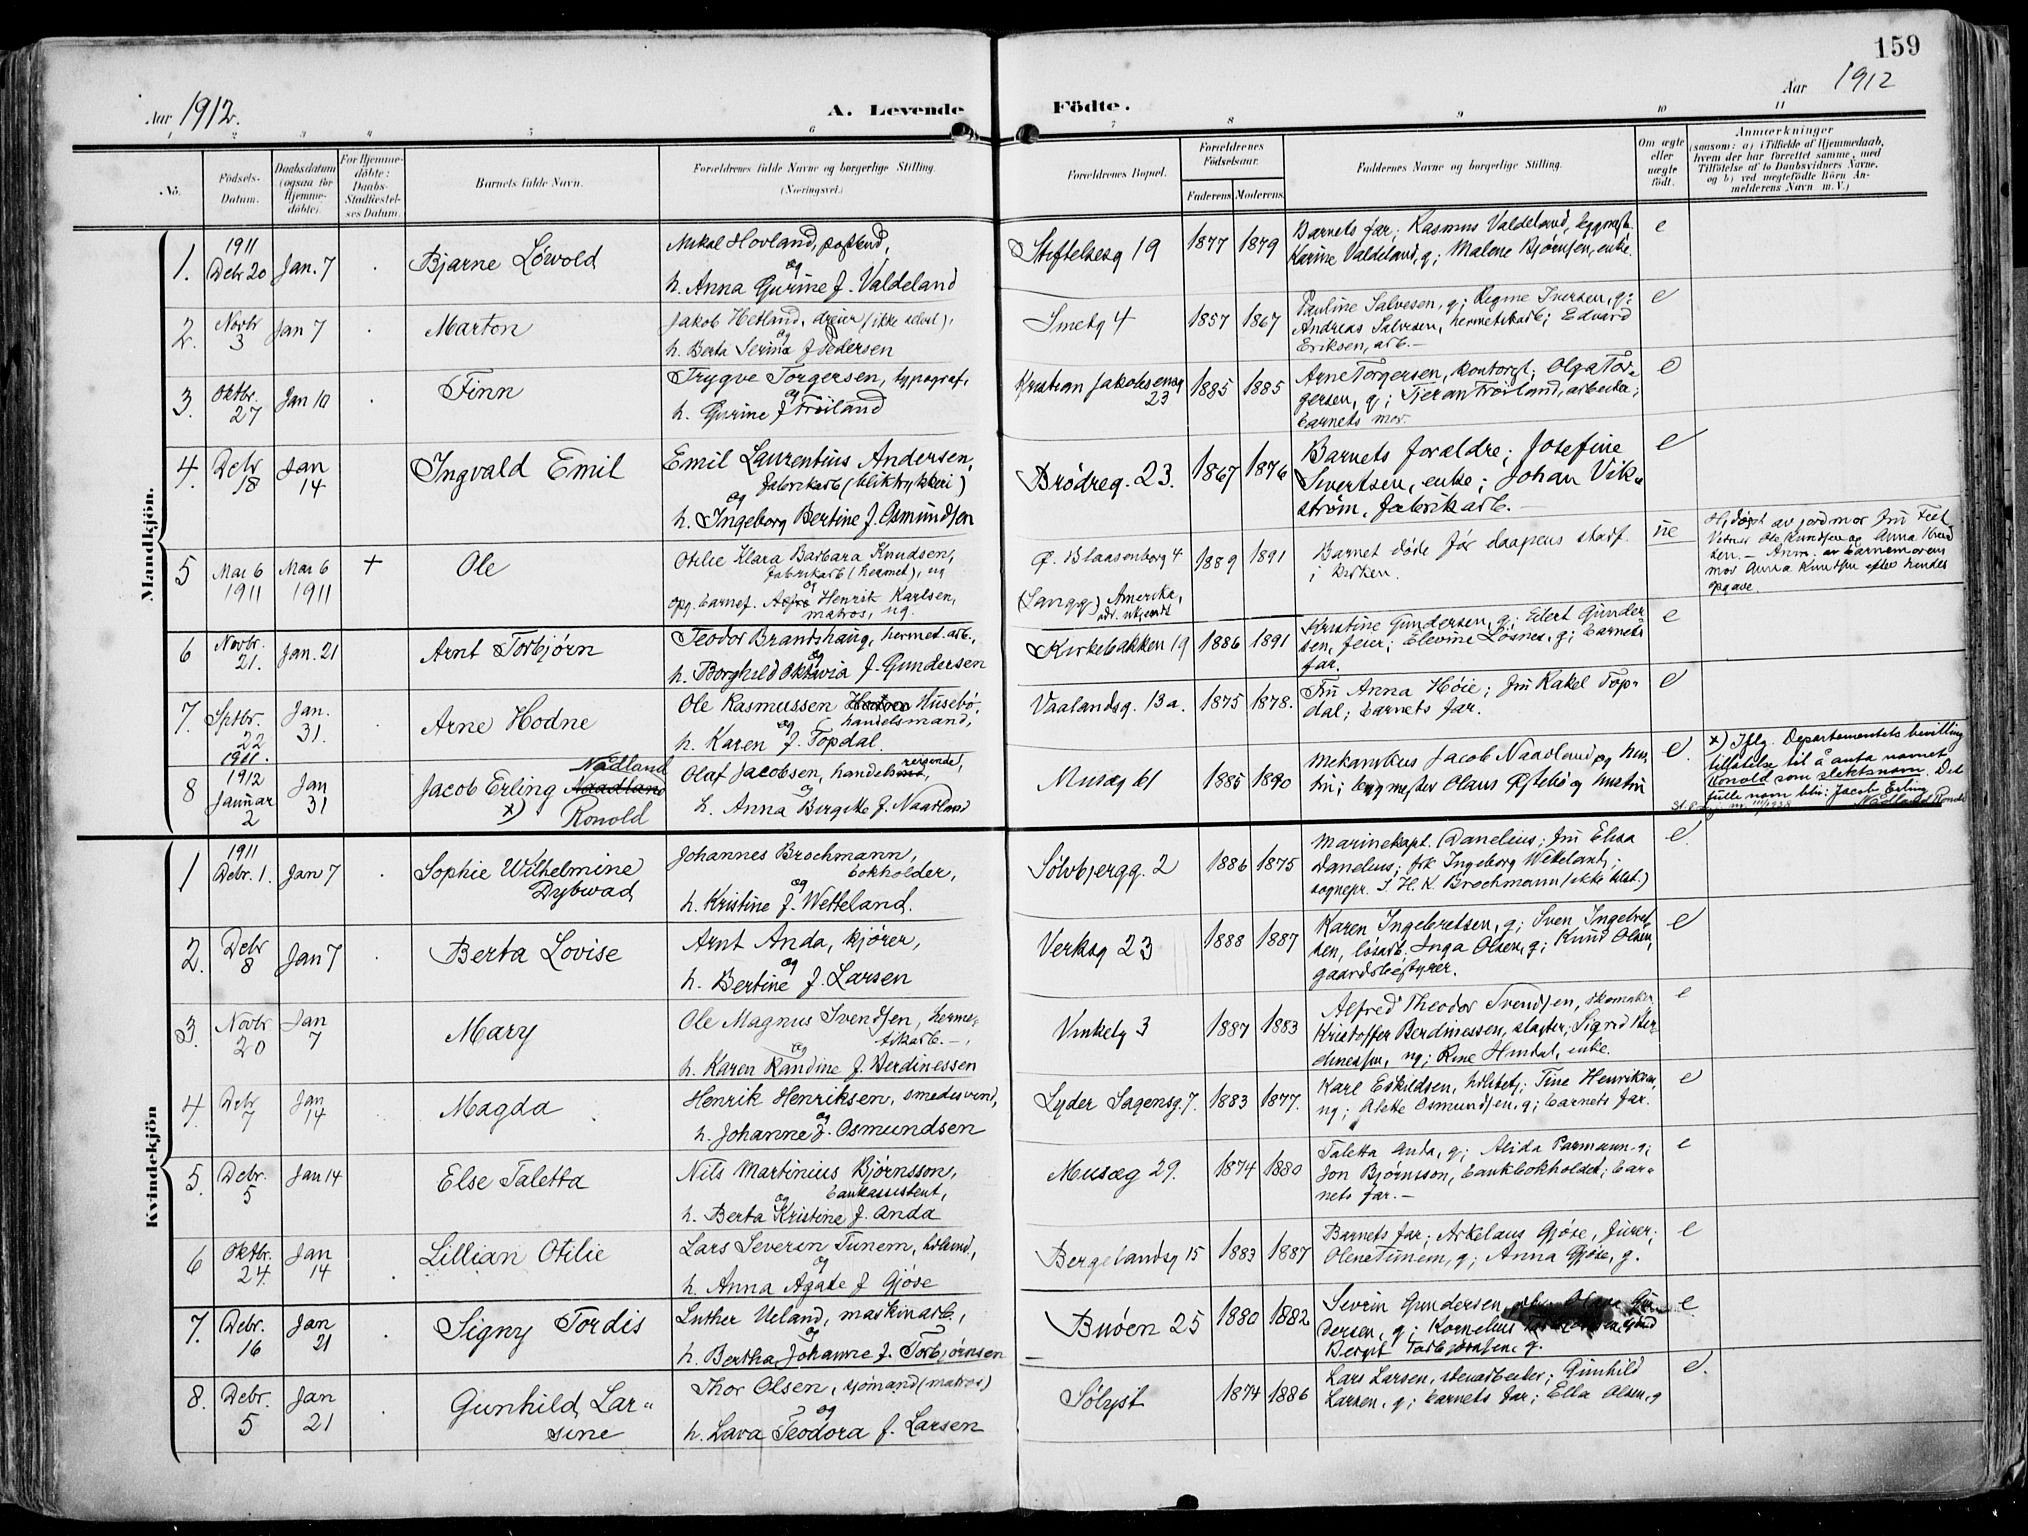 159
Aar 1912.
A. Levende
Födte.
Aar 1912
1 2 3 4 5 6 7 8 9 10 11
No.
Födsels-
Datum.
Daabsdatum
(ogsaa for
Hjemme-
döbte).
For Hjemme-
döbte:
Daabs-
Stadfæstel-
ses Datum.
Barnets fulde Navn.
Forældrenes fulde Navne og borgerlige Stilling.
(Næringsvei.)
Forældrenes Bopæl.
Forældrenes
Födselsaar.
Faderens. Moderens.
Faddernes Navne og borgerlige Stilling.
Om ægte
eller
uægte
födt.
Anmærkninger
(saasom: a) i Tilfælde af Hjemmedaab,
hvem der har forrettet samme, med
Tilföielse af to Daabsvidners Navne,
og b) ved uægtefödte Börn An-
melderens Navn m. V.)
Mandkjön.
1. 1911 Debr 20 Jan. 7 Bjarne Lövold
Mikal Hovland, postbud,
og
h. Anna Gurine f. Valdeland
Stiftelsesg 19 1877 1879
Barnets far; Rasmus Valdeland,
Karine Valdeland, g; Malene Bjørnsen, enke.
e
2. Novbr 3 Jan 7 Marton
Jakob Hetland, dreier (ikke selvst),
og
h. Berta Serina f Pedersen
Smedg 4 1857 1867
Pauline Salvesen, g; Regine Iversen, g;
Andreas Salvesen, hermetikarb; Edvard
Eriksen, arb. —
e
3. Oktbr. 27 Jan 10 Finn
Trygve Torgersen, typograf,
og
h. Gurine f Frøiland
Kristian Jakobsensg 23 1885 1885
Arne Torgersen, kontorist; Olga Tor-
gersen, g; Fjeran Frøiland, arbeider;
barnets mor.
e
4. Debr 18 Jan 14 Ingvald Emil
Emil Laurentius Andersen,
fabrikarb (bliktrykkeri)
og
h. Ingeborg Bertine f. Osmundsen
Brödreg. 23. 1867 1876
Barnets foraldre; Josefine
Sivertsen, enke; Johan Vik-
strøm, fabrikarb. —
e
5 Mai 6 1911 Mai 6 1911 + Ole
Otilie Klara Barbara Knudsen,
fabrikarb (hermet), ug
og
opg. barnef. Henrik Karlsen,
matros, ug.
Ø. Blaasenborg 4 1889 1891
(Langg) Amerika,
adr. ukjendt
Barnet døde før daapens stadf.
i kirken.
ue
Hj.døpt av jordmor Fru
Vidner Ole Knudsen og Anna Knud-
sen. — Anm. av barnemorens
mor Anna Knudsen efter hendes
opgave
6 Novbr. 21. Jan. 21 Arnt Torbjørn
Teodor Brandshaug, hermet.arb.,
og
h. Borghild Oktavia f. Gundersen
Kirkebakken 19 1886 1891
Kristine Gundersen, g; Eilert Gunder-
sen, feier; Elevine Løsnes, g; barnets
far.
e
7. Septbr. 22 1911. Jan. 31. Arne Hodne
Ole Rasmussen Husebö,
handelsmand,
og
h. Karen f. Topdal.
Vaalandsg. 13a. 1875 1878.
Fru Anna Høie; fru Rakel Top-
dal; barnets far.
e
8 1912 Januar 2 Jan 31 Jacob Erling Naadland Nådland
x) Ronold
Olaf Jacobsen, handelsreisende,
og
h. Anna Birgitte f. Naadland
Musæg 61 1885 1890
Mekanikus Jacob Naadland og hus-
tru; bygmester Olaus Østebö og hustru
e.
x) Iflg. Departementets bevilling
tillatelse til å anta navnet
Ronold som slektsnavn. Det
fulle navn blir: Jacob Erling
Nådland Ronold
Kvindekjön
1 1911 Debr. 1. Jan 7 Sophie Wilhelmine
Dybwad
Johannes Brochmann,
bokholder,
og
h. Kristine f. Wetteland.
Sölvbjergg. 2 1886 1875
Marinekapt. Danelius; fru Elisa
Danelius; frk Ingeborg Wetteland;
sognepr. J. H. K. Brochmann (ikke tilst.)
e.
2. Debr 8 Jan 7 Berta Lovise
Arnt Anda, kjører,
og
h. Bertine f. Larsen
Verksg 23 1888 1887
Karen Ingebretsen, g; Sven Ingebret-
sen, løsarb. Inga Olsen, g; Knud Olsen,
gaardsbestyrer.
e
3. Novbr 20 Jan 7 Mary
Ole Magnus Svendsen, herme-
tikarb. —,
og
h. Karen Randine f. Berdinessen
Vinkelg 3 1887 1883
Alfred Theodor Svendsen, skomaker,
Kristoffer Berdinessen, slagter; Sigrid Ber-
dinessen, ug; Rine Hindal, enke.
e
4. Debr 7 Jan 14 Magda
Henrik Henriksen, smedesvend,
og
h. Johanne f. Osmundsen
Lyder Sagensg. 7. 1883 1877.
Karl Eskildsen, Tine Henriksen,
ug; Osmundsen, g; barnets far.
e
5. Debr. 5 Jan 14 Else Taletta
Nils Martinius Bjørnsson,
bankassistent,
og
h. Berta Kristine f. Anda
Musæg 29. 1874 1880
Taletta Anda, g; Alida Parmann, g;
Jon Bjørnsson, bankbokholder; bar-
nets far. —
e
6 Oktbr. 24. Jan 14 Lillian Otilie
Lars Severin Tunem,
og
h. Anna Agate f Gjöse
Bergelandsg 15 1883 1887
Barnets far; Arkelaus Gjöse, fürer;
Olene Tunem, g; Anna Gjöse, g.
e
7. Debr. 16 Jan 21 Signy Tordis
Luther Ueland, maskinarb.,
og
h. Bertha Johanne f. Torbjørnsen
Buöen 25 1880 1882
Severin Gundersen, Gun-
dersen, g; Kornelius
Bergit Torbjørnsen, g.
e
8. Debr. 5 Jan 21 Gunhild Lar-
sine
Thor Olsen, sjömand (matros)
og
h. Lava Teodora f. Larsen
Sölyst 1874 1886
Lars Larsen, stenarbeider; Gunhild
Larsen, g; barnets far; Ella Olsen, g
e.